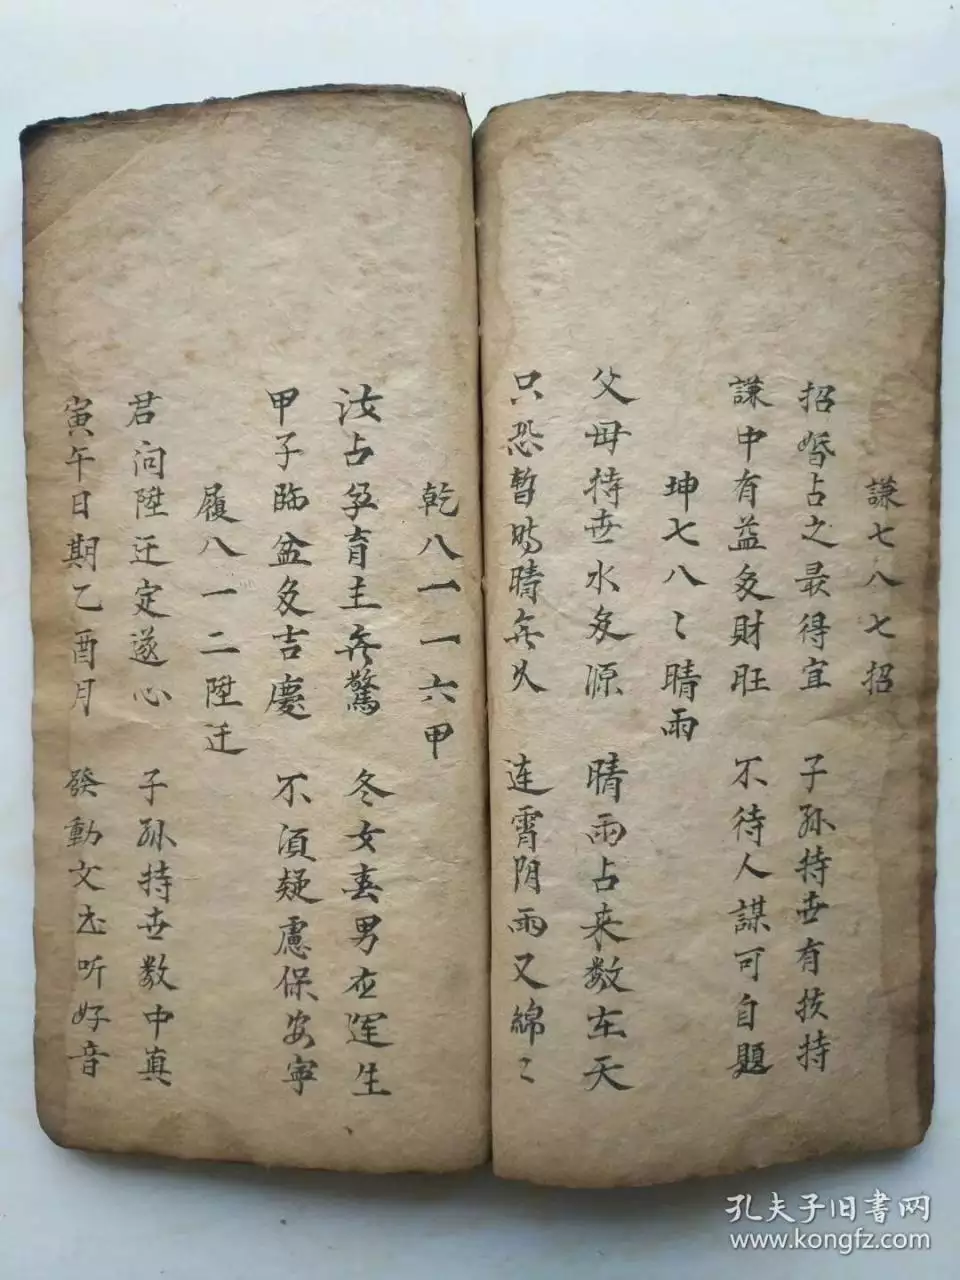 謙七八七招
招婚占之最得宜 子孫持世有扶持
謙中有益爻財旺 不待人謀可自題
坤七八〻晴雨
父母持世水爻源 晴雨占来数在天
只恐暫时晴無久 连霄阴雨又綿〻
乾八一一一六甲
汝占孕育主無驚 冬女春男在運生
甲子臨盆爻吉慶 不須疑慮保安寧
履八一二陞迁
君问陞迁定遂心 子孫持世数中真
寅午日期乙酉月 發動文书听好音
孔夫子旧書网
www.kongfz.com